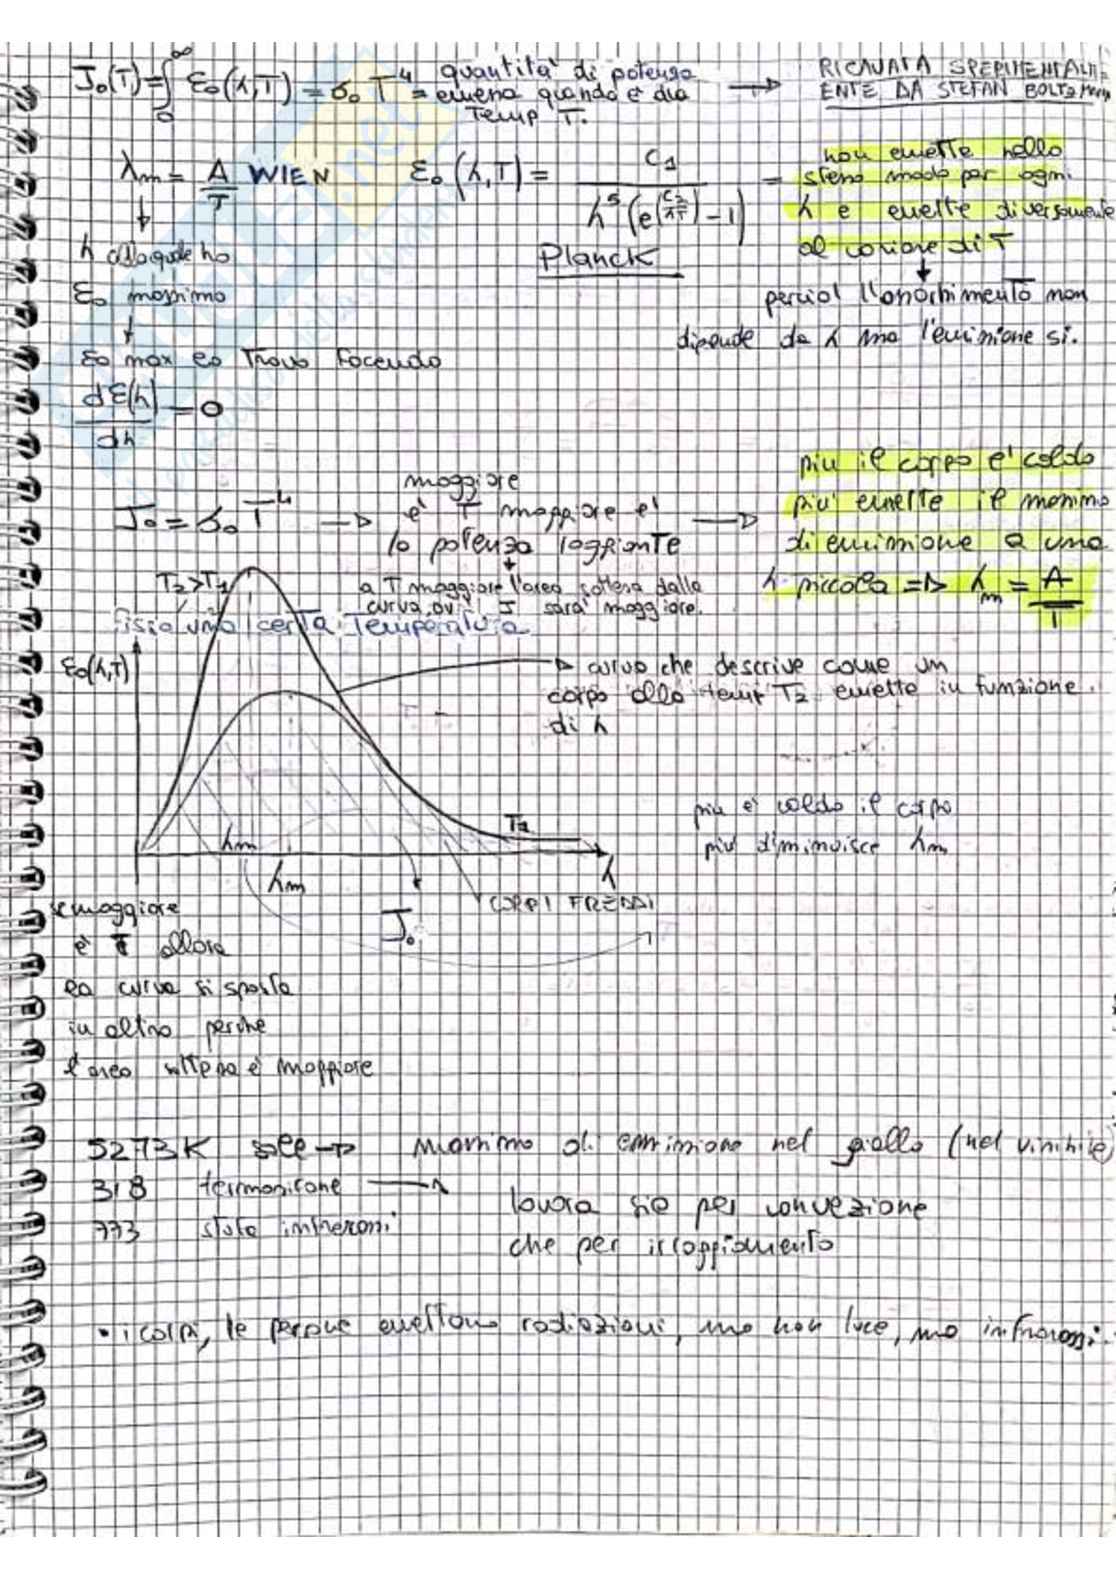 J₀(T) = ∫₀^∞ ε₀(λ,T) = σ₀ T⁴ = quantità di potenza
emessa quando è alla
Temp T.
RICAVATA SPERIMENTALM=
ENTE DA STEFAN BOLTZMANN
λm = A/T WIEN
ε₀(λ,T) = C₁ / λ⁵(e^(C₂/λT) - 1)
Planck
= non emette nello
stesso modo per ogni
λ e emette diversamente
al variare di T
perciò l'assorbimento non
dipende da λ ma l'emissione si.
λ alla quale ho
ε₀ massimo
ε₀ max lo trovo facendo
dε(λ)/dλ = 0
J₀ = σ₀ T⁴
maggiore
è T maggiore è
la potenza raggiante
a T maggiore l'area sottesa dalla
curva, J sarà maggiore.
più il corpo è caldo
più emette il massimo
di emissione a una
λ piccola => λm = A/T
T₂>T₁
Fissia una certa Temperatura
ε₀(λ,T)
curva che descrive come un
corpo alla temp T₂ emette in funzione
di λ
T₁
più è caldo il corpo
più diminuisce λm
λm
λm
λ
J₀
CORPI FREDDI
se maggiore
è T allora
la curva si sposta
in altro perche
l'area sottesa è maggiore
5273K sole → massimo di emissione nel giallo (nel visibile)
318 termosifone → lavora sia per convezione
che per irraggiamento
773 stufa infrarossi
• i corpi, le persone emettono radiazioni, ma non luce, ma infrarossi.